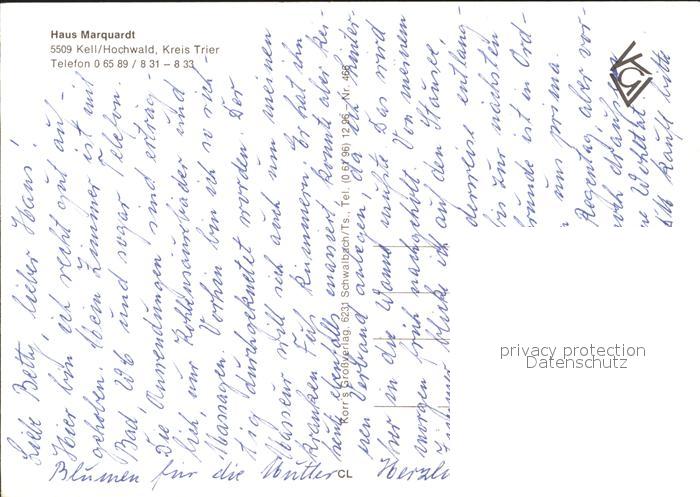 Haus Marquardt
5509 Kell/Hochwald, Kreis Trier
Telefon 0 65 89 / 8 31 – 8 33
Liebe Betty, lieber Hans!
Hier bin ich recht gut auf-
gehoben. Mein Zimmer ist mit
Bad, WC und sogar Telefon.
Die Anwendungen sind erträg-
lich, nur Kohlensäurebäder und
Massagen. Vorhin bin ich so rich-
tig durchgeknetet worden. Der
Masseur will sich auch um meinen
kranken Fuß kümmern. Er hat ihn
heute ebenfalls massiert, konnte aber kei-
nen Verband anlegen, da ich hinter-
her in die Wanne mußte. Das wird
morgen früh nachgeholt. Von meinem
Zimmer blicke ich auf den Stausee,
entlang-
bis zur nächsten
ist in Ord-
uns prima.
Regentag, aber vor-
Wohltat.
kauft bitte
Blumen für die Mutter. Herzli
Korr's Großverlag, 6231 Schwalbach/Ts., Tel. (0 61 96) 12 96 – Nr. 466
CL
privacy protection
Datenschutz